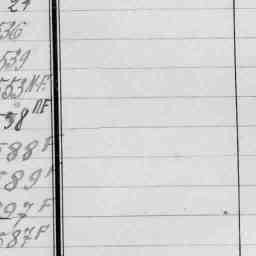 24
536
539
553 N.F.
58 N.F
588 F
589 F
597 F
587 F